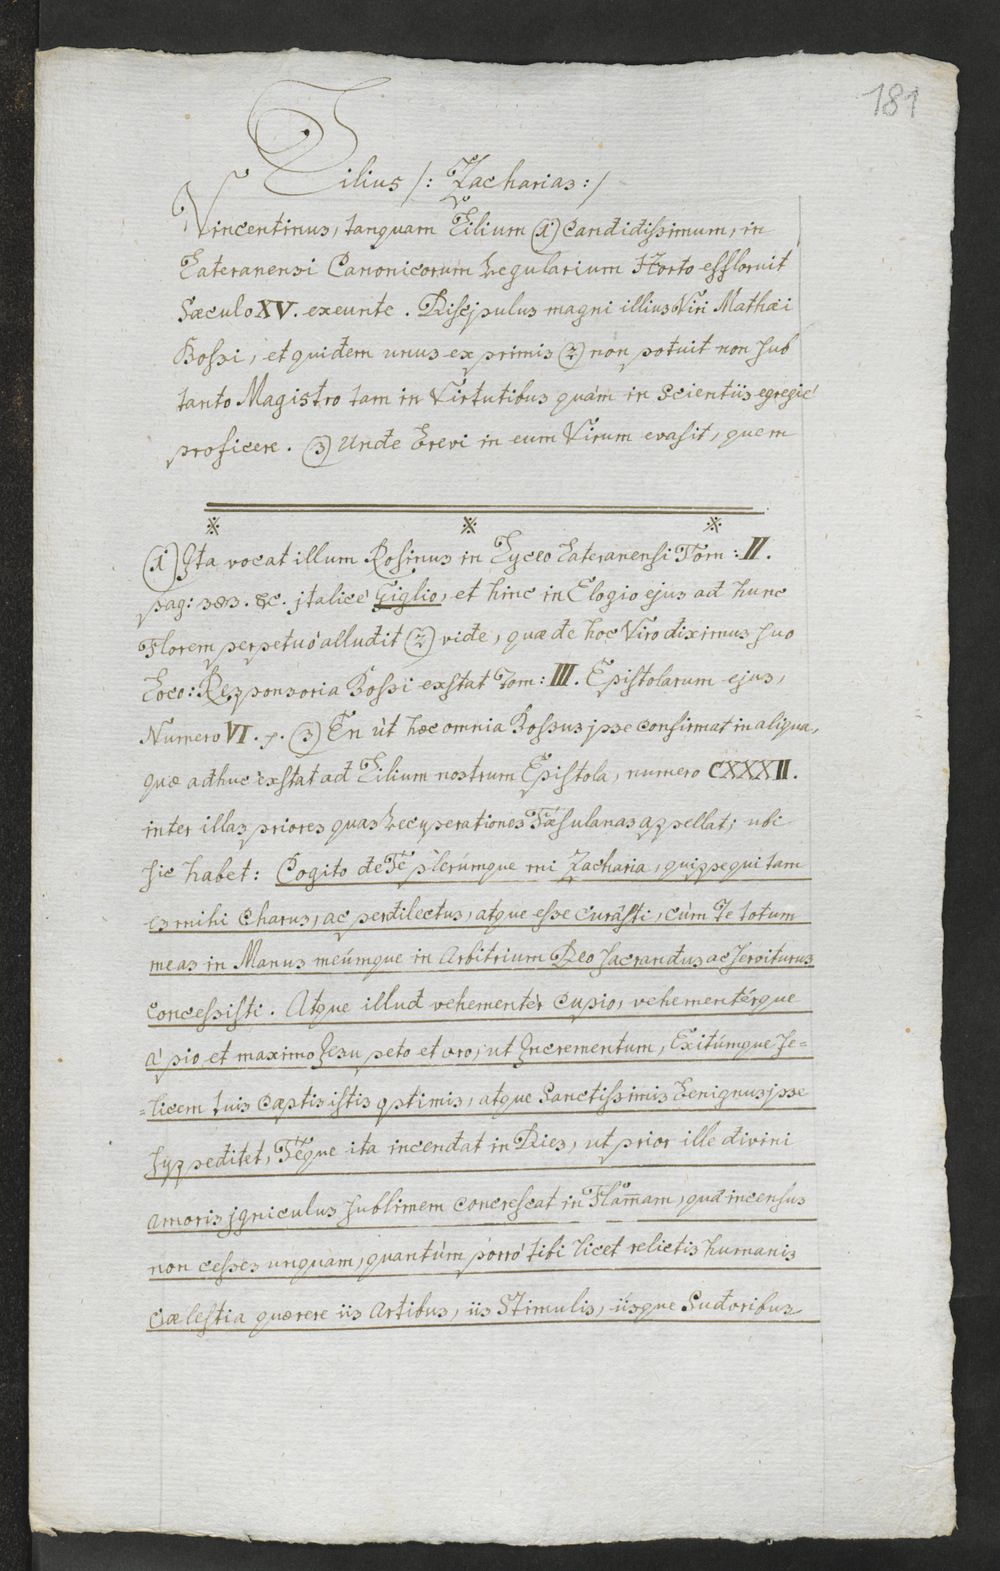 181
Lilius /: Zacharias :/
Vincentinus, tanquam Lilium (1) Candidissimum, in
Lateranensi Canonicorum Regularium Horto effloruit
Sæculo XV. exeunte. Discipulus magni illius Viri Mathæi
Bossi, et quidem unus ex primis (2) non potuit non sub
tanto Magistro tam in Virtutibus quàm in Scientiis egregiè
proficere. (3) Unde brevi in eum Virum evasit, quem
(1) Ita vocat illum Rosinus in Lyceo Lateranensi Tom: II.
pag: &c. jtalicè Giglio, et hinc in Elogio ejus ad hunc
Florem perpetuò alludit (2) vide, quæ de hoc Viro diximus suo
Loco: Responsoria Bossi exstat Tom: III. Epistolarum ejus,
Numero VI. (3) En ùt hæc omnia Bossus jpse confirmat in aliqua,
quæ adhuc exstat ad Lilium nostrum Epistola, numero CXXXII.
inter illas priores quas Recuperationes Fæsulanas appellat; ubi
sic habet: Cogito de Te plerúmque mi Zacharia, quippe qui tam
es mihi Charus, ac perdilectus, atque esse curâsti, cùm Te totum
meas in Manus meúmque in Arbitrium Deo sacrandus ac serviturus
concessisti. Atque illud vehementèr Cupio, vehementérque
à pio et maximo Jesu peto et oro, ut Incrementum, Exitúmque Fe=
=licem tuis Cæptis istis optimis, atque Sanctissimis benignus jpse
suppeditet, Téque ita incendat in Dies, ut prior ille divini
amoris jgniculus sublimem concrescat in Flam̄am, quâ incensus
non cesses unquam, quantùm porrò tibi licet relictis humanis
Cælestia quærere iis Artibus, iis Stimulis, iisque Sudoribus